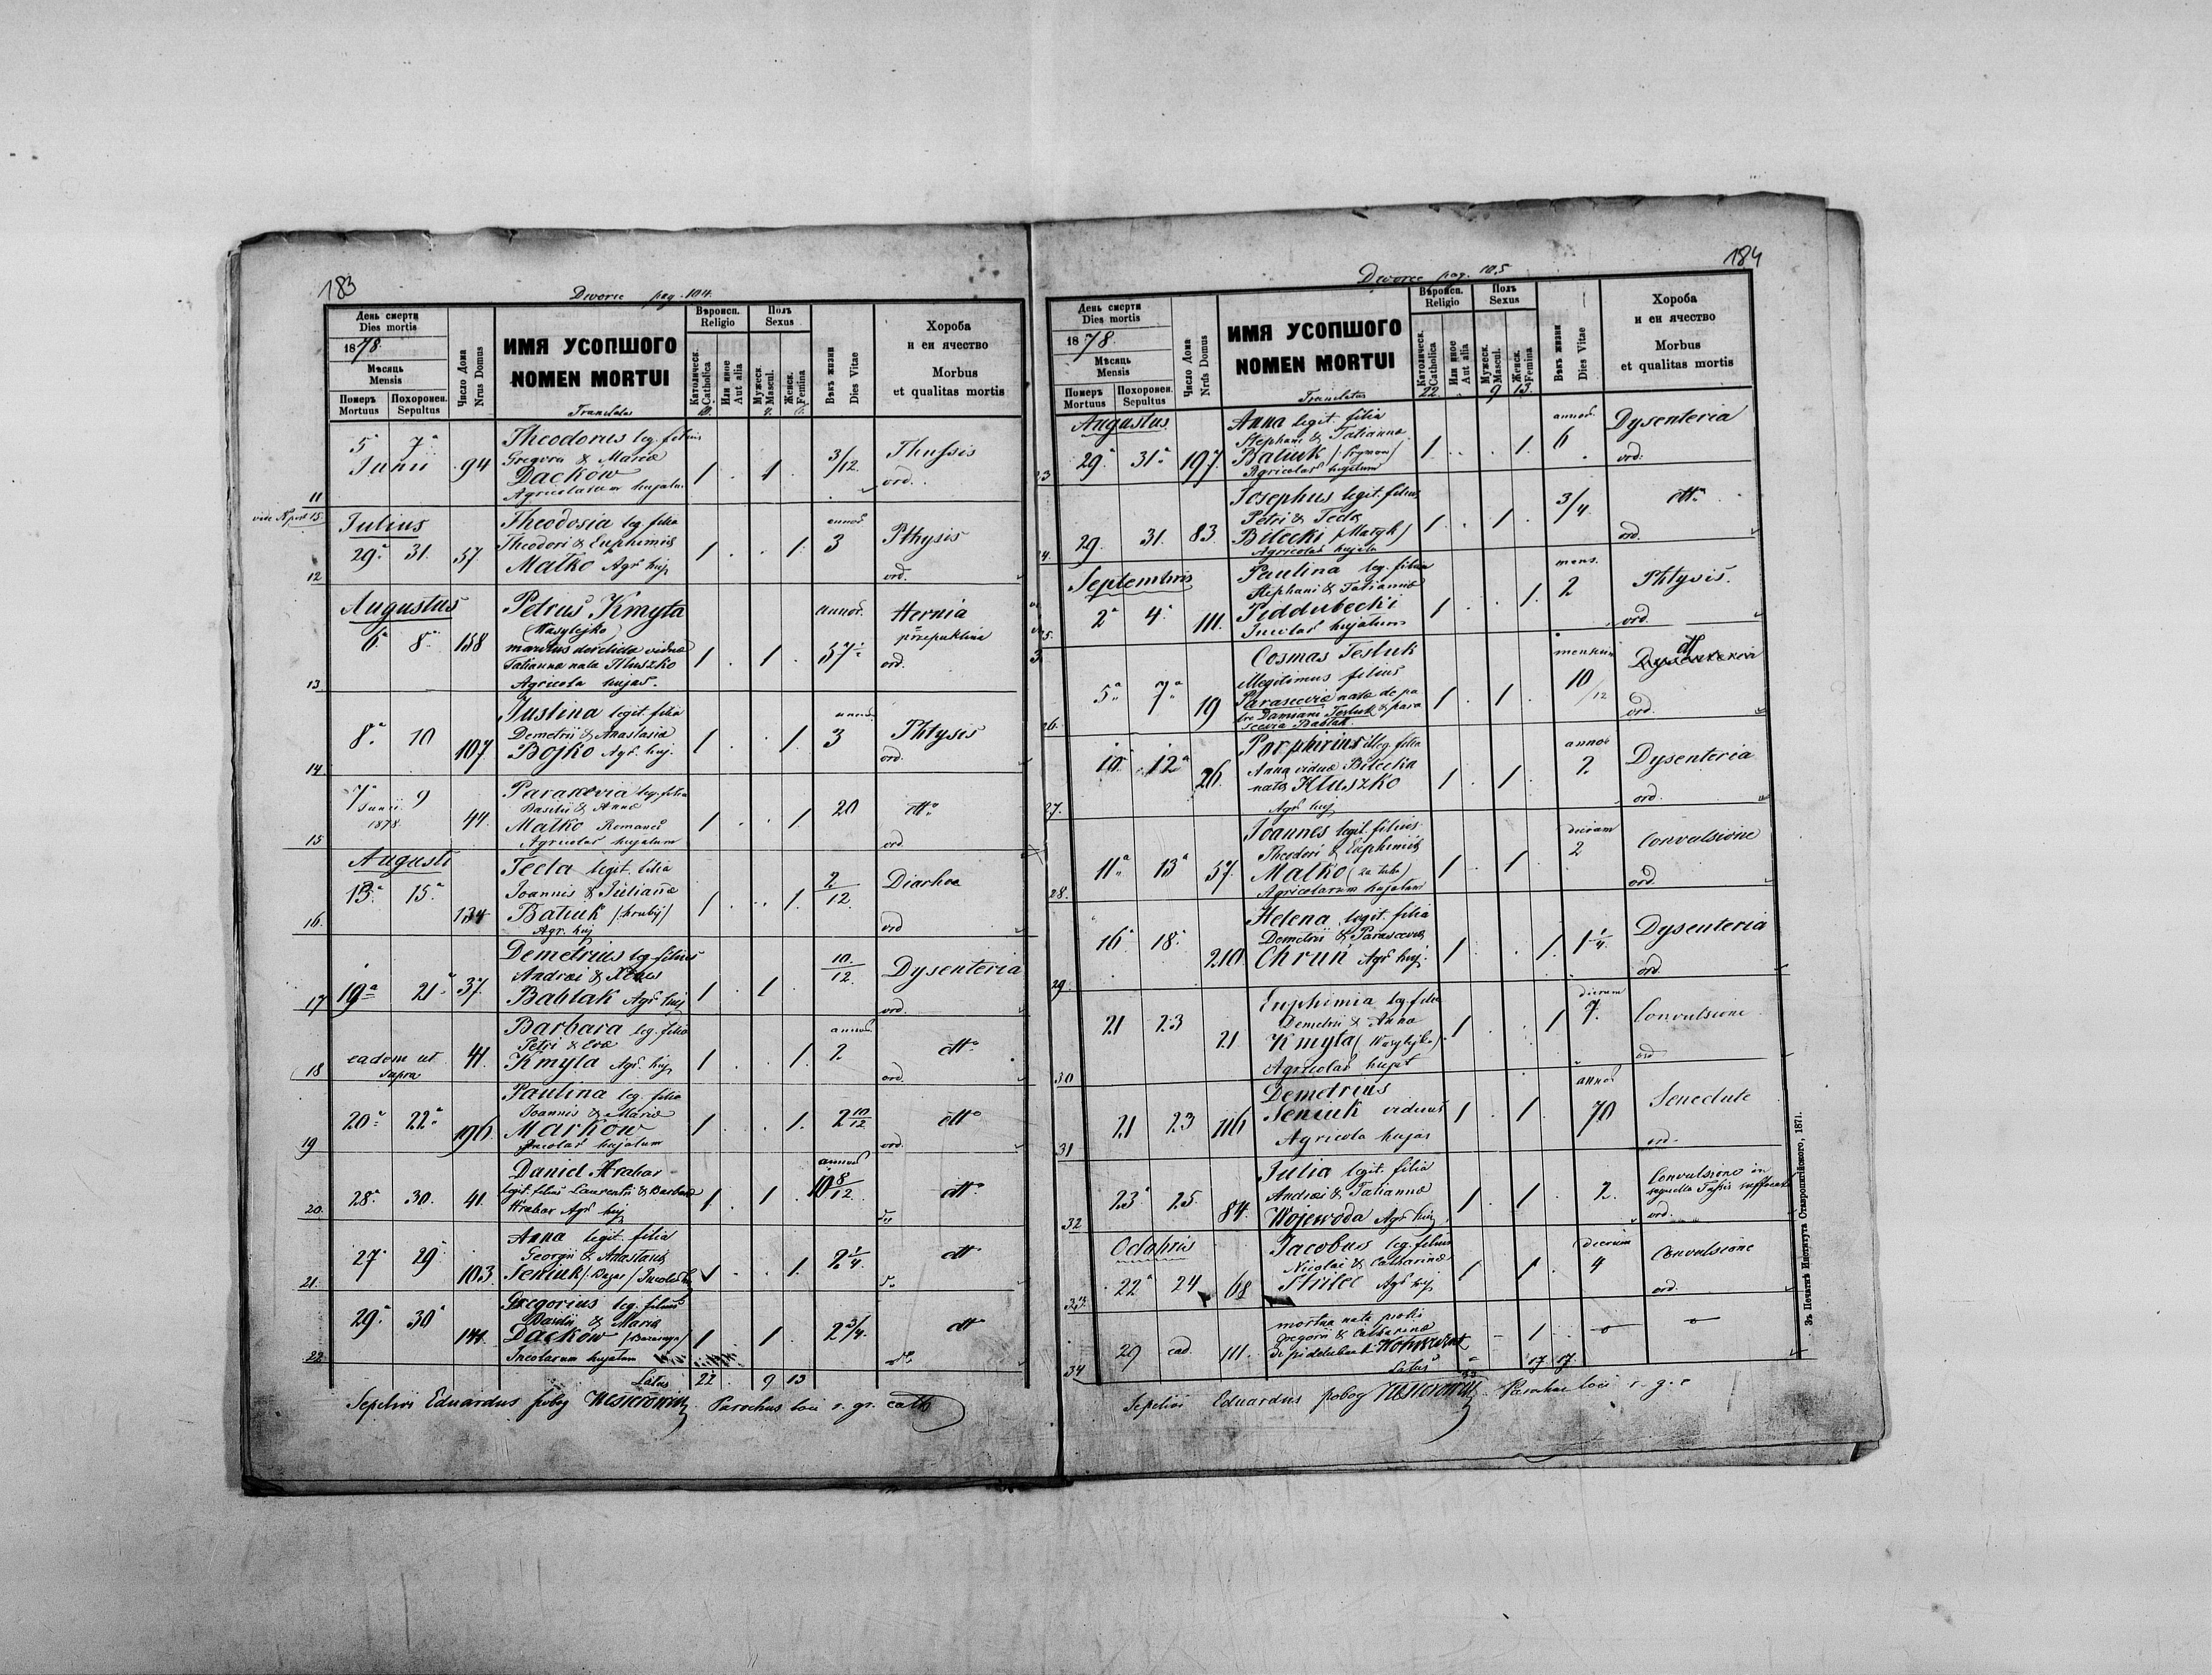 183
Dworce pag. 104.
День смерти
Dies mortis
1878.
Мѣсяць
Mensis
Померъ
Mortuus
Похоронен.
Sepultus
Число Дома
Nrus Domus
ИМЯ УСОПШОГО
NOMEN MORTUI
Вѣроисп.
Religio
Католическ.
Catholica
Или иное
Aut alia
Полъ
Sexus
Мужеск.
Mascul.
Женск.
Femina
Вѣкъ жизни
Dies Vitae
Хороба
и еи ячество
Morbus
et qualitas mortis
Translatus
5ª 7ª
Junii 94
Theodorus leg. filius
Gregorii & Mariæ
Dackow
Agricolarum hujatum
1 . 1 . 3/12
Thussis
ord.
11
vide Nº post 15.
Julius
29ª 31. 57.
Theodosia leg. filia
Theodori & Euphimiæ
Matko Agr. huj
1 . . 1. annor. 3
Pthysis
ord.
12
Augustus
6ª 8ª 158
Petrus Kmyta
(Wasylejko)
maritus derelicta vidua
Tatianna nata Hluszko
Agricola hujas.
1 . 1 . annor. 57
Hernia
przepuklina
ord.
13
8ª 10 107
Justina legit. filia
Demetrii & Anastasia
Bojko Agr. huj.
1 . . 1. annor. 3
Phtysis
ord.
14
7ª 9
Junii
1878. 44.
Paraskevia leg. filia
Basilii & Annæ
Matko Romanis
Agricolar hujatum
1 . . 1. 20
dttº
ord
15
Augusti
13ª 15ª 134
Tecla legit. filia
Joannis & Julianæ
Batiuk (hrubij)
Agr. huj
1 . . 1. 2/12.
Diarhoe
ord
16.
19ª 21ª 37.
Demetrius leg. filius
Andreæ &
Bablak Agr. huj
1 . 1 . 10/12.
Dysenteria
ord.
17
eadem ut
supra 41.
Barbara leg. filia
Petri & Evæ
Kmyta Agr. huj
1 . . 1. annor. 2
dttº
ord.
18
20ª 22ª 196.
Paulina leg. filia
Joannis & Mariæ
Markow
Incolar hujatum
1 . . 1. 2 10/12
dttº
ord.
19
28ª 30. 41.
Daniel Hrabar
legit. filius Laurentii & Barbaræ
Hrabar Agr. huj
1 . 1 . annor. 10 8/12.
dttº
20.
27 29 103
Anna legit. filia
Georgii & Anastasiæ
Seniuk (Bazar) Incolar huj
1 . . 1. 2 1/4.
dttº
21.
29ª 30ª 144.
Gregorius leg. filius
Basilii & Mariæ
Dackow
Incolarum hujatum
1 1 . 2 3/4.
dttº
22.
Latus 22 . 9 13
Sepelivi Eduardus pobog Parochus loci r. gr. cath
184
Dworce pag. 105
День смерти
Dies mortis
1878
Мѣсяць
Mensis
Померъ
Mortuus
Похоронен.
Sepultus
Число Дома
Nrus Domus
ИМЯ УСОПШОГО
NOMEN MORTUI
Вѣроисп.
Religio
Католическ.
Catholica
Или иное
Aut alia
Полъ
Sexus
Мужеск.
Mascul.
Женск.
Femina
Вѣкъ жизни
Dies Vitae
Хороба
и еи ячество
Morbus
et qualitas mortis
Translatus 22. . 9 13.
Augustus
29ª 31ª 197.
Anna legit. filia
Stephani & Tatiannæ
Batiuk
Agricolar hujatum
1 . . 1. annor. 6
Dysenteria
ord.
23
29. 31. 83.
Josephus legit. filius
Petri & Teclæ
Bilecki (Matyk)
Agricolar hujatu
1 . 1 . 3/4
dttº
ord.
24.
Septembris
2ª 4ª 111.
Paulina leg. filia
Stephani & Tatiannæ
Piddubecki
Incolar hujatum
1 . . 1. mens. 2
Phtysis.
ord.
25.
5ª 7ª 19
Cosmas Testuk
illegitimus filius
Parasceviæ nata de pa
tre Damiani Testuk & para
scevia Bablak.
1 . 1 . mensium 10/12
Dysenteria
ord.
26.
10 12ª 26.
Porphirius illeg. filia
Anna vidua Bilecka
nata Hluszko
Agr. huj
1 . 1 . annor 2
Dysenteria
ord.
27.
11ª 13ª 57.
Joannes legit. filius
Theodori & Euphimiæ
Matko
Agricolarum hujatum
1 . 1 . dierum 2
Convulsione
ord.
28.
16ª 18ª 210.
Helena legit. filia
Demetrii & Parasceviæ
Chruń Agr. huj.
1 . . 1. 1 1/4.
Dysenteria
ord.
29.
21 23 21
Euphimia leg. filia
Demetrii & Anna
Kmyta (Wasylejko)
Agricolar hujat
1 . . 1 dierum 7.
Convulsione
ord
30
21 23 116
Demetrius
Seniuk viduus
Agricola hujas
1 . 1. annor 70
Senectute
ord.
31
23ª 25. 84.
Julia legit. filia
Andreæ & Tatiannæ
Wojewoda Agr. huj
1. . 1. 2.
Convulsione in
sequella Tussis suffocat
ord.
32
Octobris
22ª 24 68
Jacobus leg. filius
Nicolai & Catharinæ
Strilec Agr. huj
1 1 . dierum 4
Convulsione
ord.
33.
29 ead. 111.
mortua nata proles
Gregorii & Catharinæ
- 1 . —o— —o—
34
Latus 17 17.
Sepelivi Eduardus pobog Parochus loci r. g. c
Зъ Печатнѣ Института Ставропигійского, 1871.